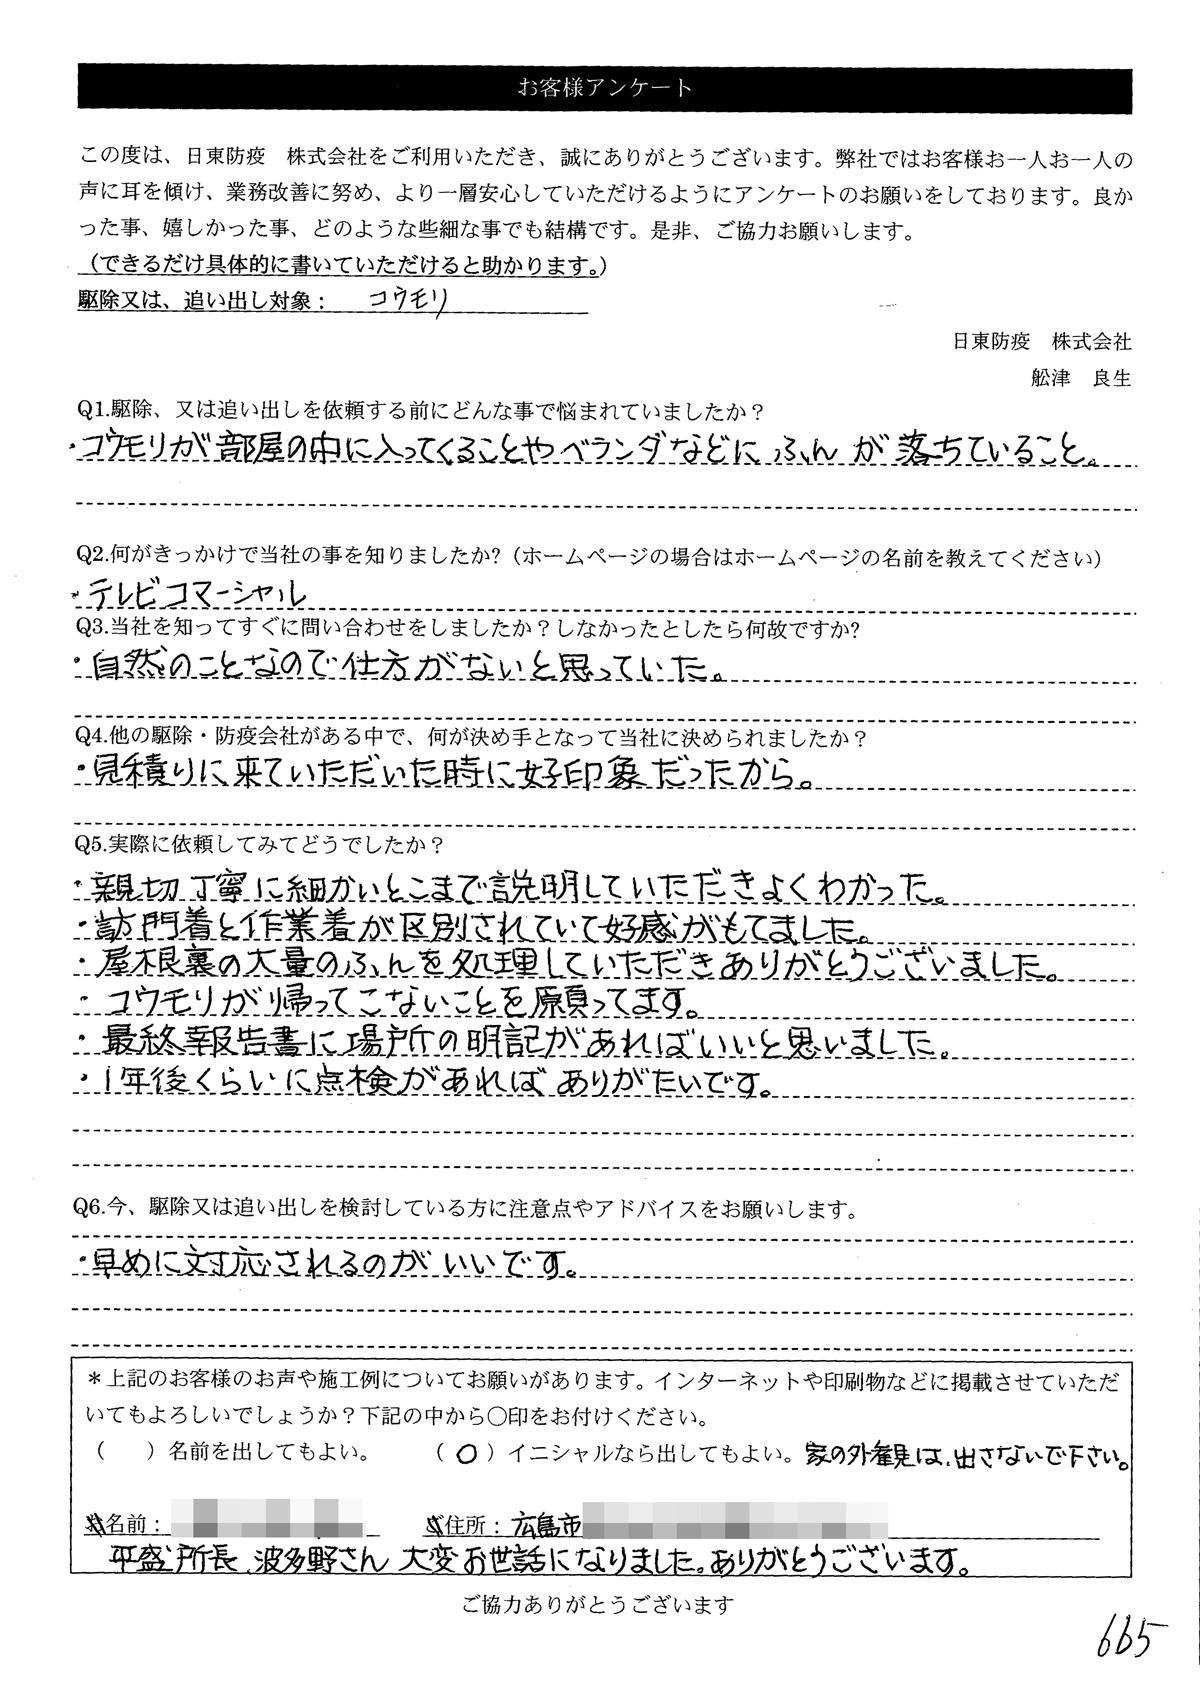 お客様アンケート
この度は、日東防疫　株式会社をご利用いただき、誠にありがとうございます。弊社ではお客様お一人お一人の
声に耳を傾け、業務改善に努め、より一層安心していただけるようにアンケートのお願いをしております。良か
った事、嬉しかった事、どのような些細な事でも結構です。是非、ご協力お願いします。
（できるだけ具体的に書いていただけると助かります。）
駆除又は、追い出し対象：　コウモリ
日東防疫　株式会社
舩津　良生
Q1.駆除、又は追い出しを依頼する前にどんな事で悩まれていましたか？
・コウモリが部屋の中に入ってくることやベランダなどに ふん が 落ちていること。
Q2.何がきっかけで当社の事を知りましたか?（ホームページの場合はホームページの名前を教えてください）
・テレビコマーシャル
Q3.当社を知ってすぐに問い合わせをしましたか？しなかったとしたら何故ですか?
・自然のことなので仕方がないと思っていた。
Q4.他の駆除・防疫会社がある中で、何が決め手となって当社に決められましたか？
・見積りに来ていただいた時に好印象だったから。
Q5.実際に依頼してみてどうでしたか？
・親切丁寧に細かいとこまで説明していただきよくわかった。
・訪問着と作業着が区別されていて好感がもてました。
・屋根裏の大量のふんを処理していただきありがとうございました。
・コウモリが帰ってこないことを願ってます。
・最終報告書に場所の明記があればいいと思いました。
・1年後くらいに点検があれば ありがたいです。
Q6.今、駆除又は追い出しを検討している方に注意点やアドバイスをお願いします。
・早めに対応されるのが いいです。
＊上記のお客様のお声や施工例についてお願いがあります。インターネットや印刷物などに掲載させていただ
いてもよろしいでしょうか？下記の中から〇印をお付けください。
（　　）名前を出してもよい。　　（ ○ ）イニシャルなら出してもよい。家の外観は、出さないで下さい。
名前：　　住所：広島市
平盛所長、波多野さん 大変お世話になりました。ありがとうございます。
ご協力ありがとうございます
665